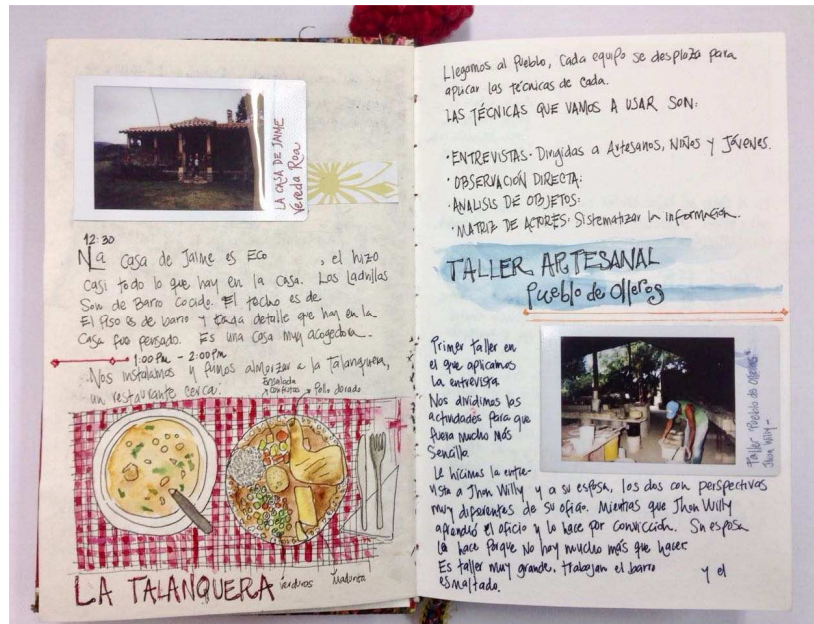 LA CASA DE JAIME
Vereda Roa
12:30
La casa de Jaime es Eco , el hizo
casi todo lo que hay en la casa. Los Ladrillos
son de Barro cocido. El techo es de
El piso es de barro y cada detalle que hay en la
casa fue pensado. Es una casa muy acogedora.
1:00 Pm - 2:00 Pm
Nos instalamos y fuimos almorzar a la Talanquera,
un restaurante cerca.
Ensalada
con frutas
Pollo dorado
LA TALANQUERA
verduras
Madurito
Llegamos al Pueblo, Cada equipo se desplaza para
aplicar las técnicas de cada.
LAS TÉCNICAS QUE VAMOS A USAR SON:
· ENTREVISTAS· Dirigidas a Artesanos, Niños y Jóvenes.
· OBSERVACIÓN DIRECTA:
· ANALISIS DE OBJETOS:
· MATRIZ DE ACTORES: Sistematizar la información.
TALLER ARTESANAL
Pueblo de Olleros
Primer taller en
el que aplicamos
la entrevista
Nos dividimos las
actividades para que
fuera mucho más
sencillo.
Le hicimos la entre-
vista a Jhon Willy y a su esposa, los dos con perspectivas
muy diferentes de su oficio. Mientras que Jhon Willy
aprendió el oficio y lo hace por convicción. Su esposa
lo hace porque no hay mucho más que hacer
Es taller muy grande, trabajan el barro y el
esmaltado.
Taller Pueblo de Olleros
Jhon Willy-